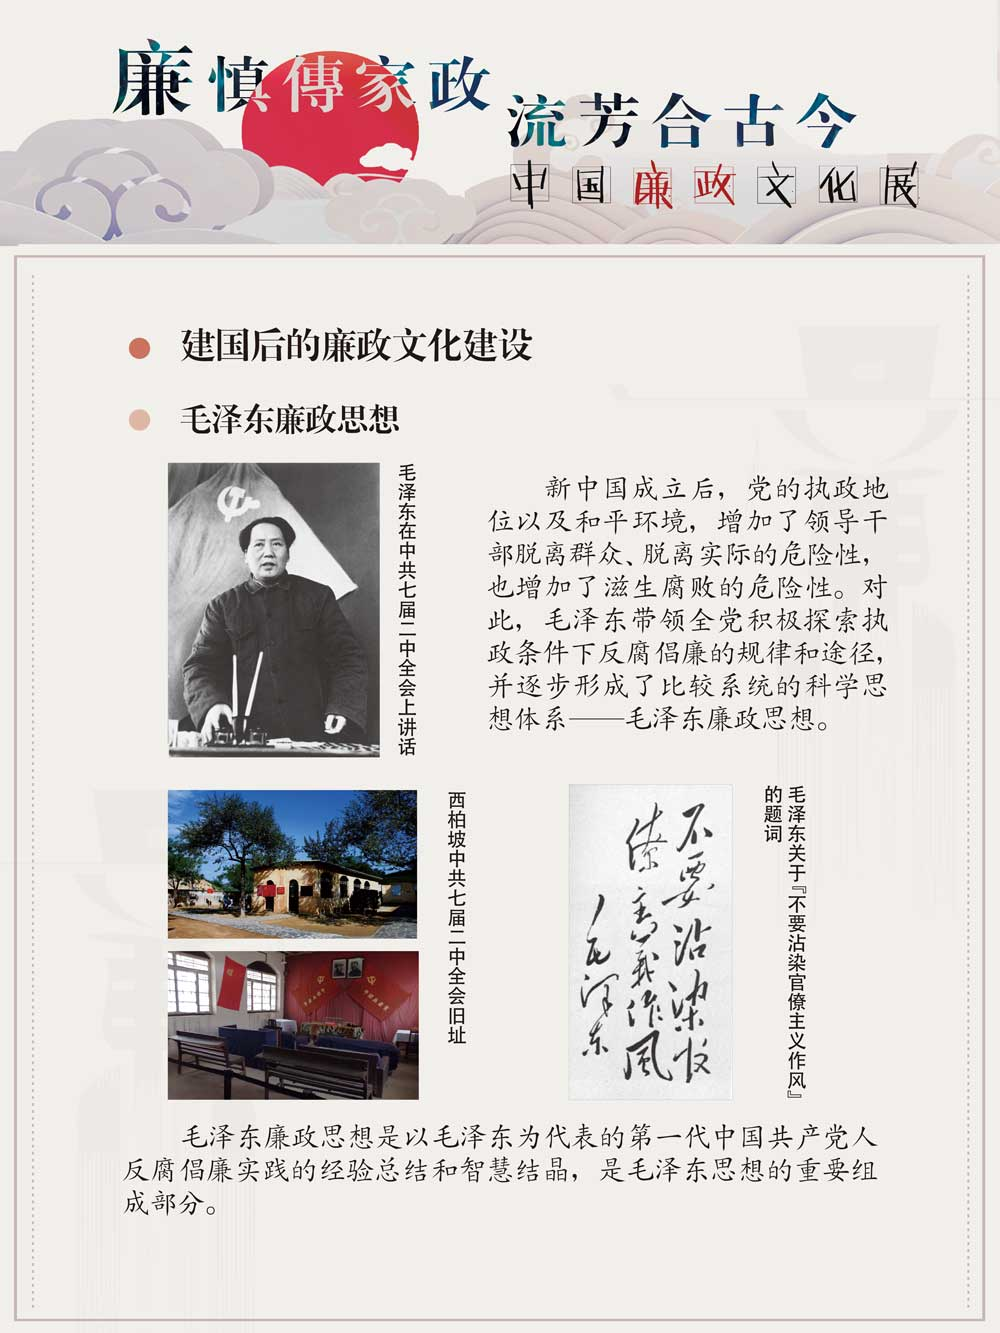 廉慎傳家政
流芳合古今
中国廉政文化展
建国后的廉政文化建设
毛泽东廉政思想
毛泽东在中共七届二中全会上讲话
新中国成立后，党的执政地
位以及和平环境，增加了领导干
部脱离群众、脱离实际的危险性，
也增加了滋生腐败的危险性。对
此，毛泽东带领全党积极探索执
政条件下反腐倡廉的规律和途径，
并逐步形成了比较系统的科学思
想体系——毛泽东廉政思想。
西柏坡中共七届二中全会旧址
不要沾染官
僚主义作风
毛泽东
毛泽东关于『不要沾染官僚主义作风』
的题词
毛泽东廉政思想是以毛泽东为代表的第一代中国共产党人
反腐倡廉实践的经验总结和智慧结晶，是毛泽东思想的重要组
成部分。